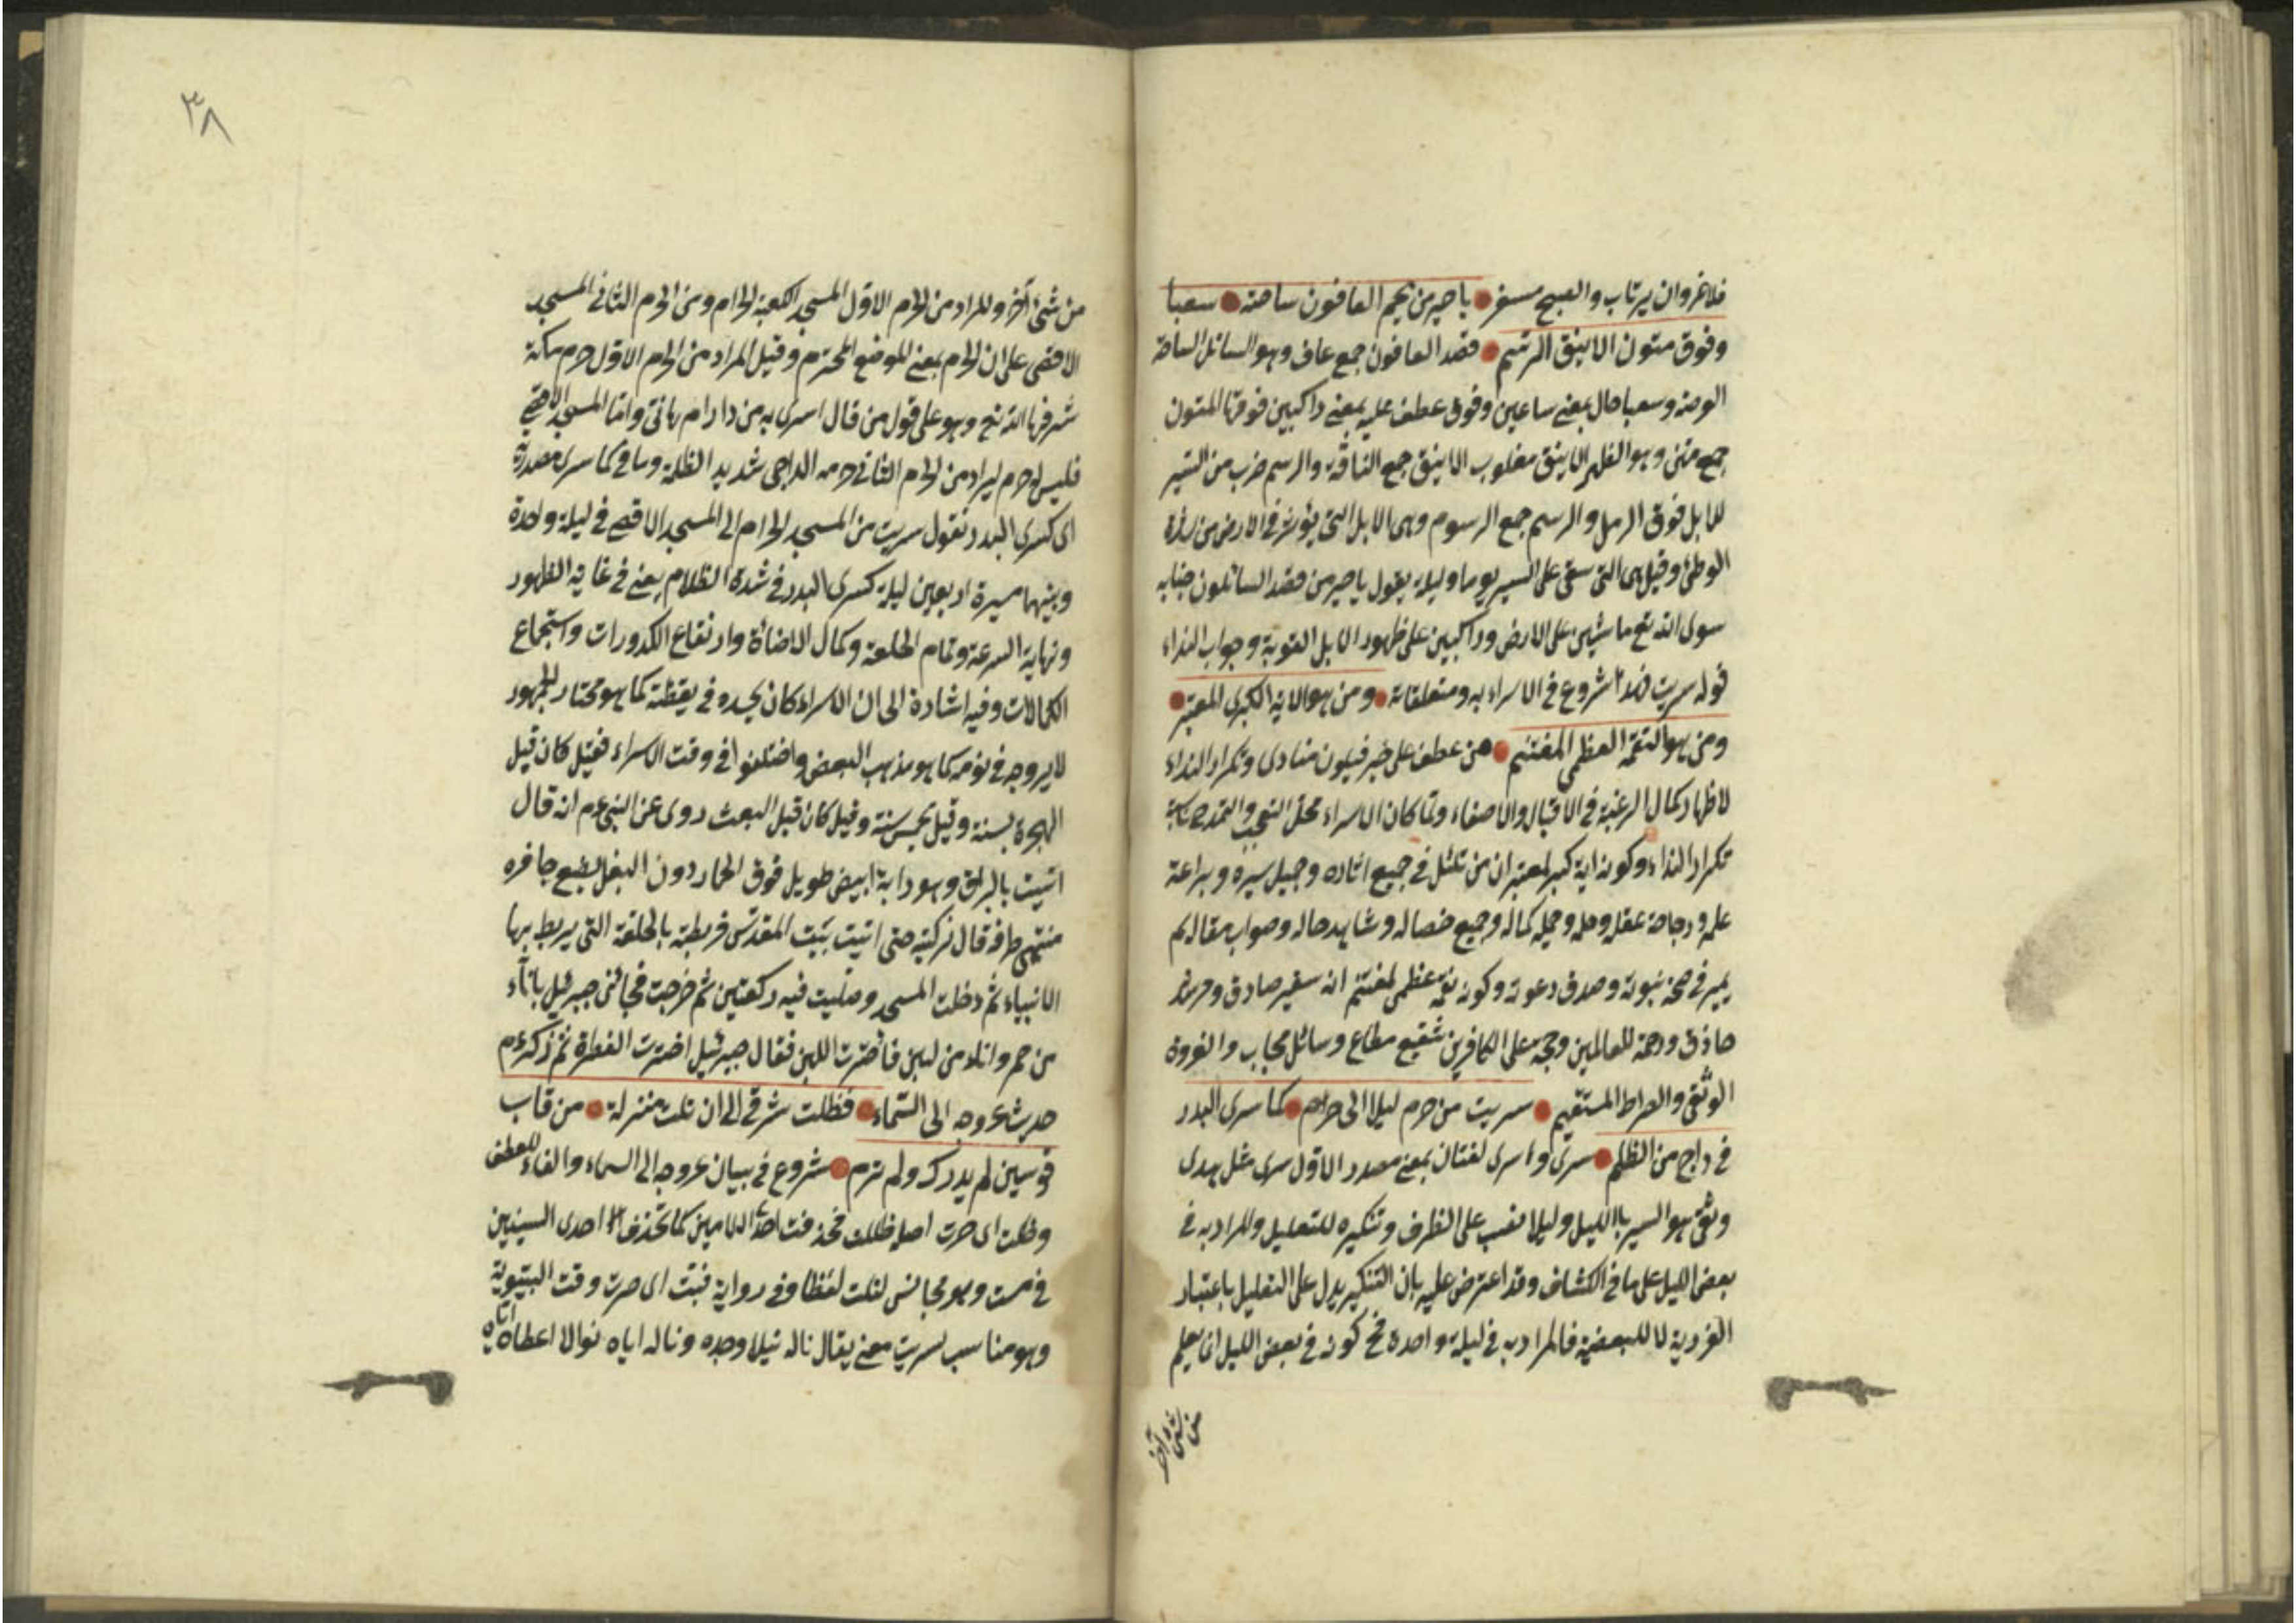 فلا غرو ان يرتاب والصبح مسفر يا خير من يمم العافون ساحته سعيا
وفوق متون الاينق الرسم قصد العافون جمع عاف وهو السائل الساحة
العرصة وسعيا حال بمعنى ساعين وفوق عطف عليه بمعنى راكبين فوقها المتون
جمع متن وهو الظهر الاينق مقلوب الانيق جمع الناقة والرسم ضرب من السير
للابل فوق الرمل والرسم جمع الرسوم وهى الابل التى يؤثر فى الارض من شدة
الوطئ وقيل هى التى تبقى على السير يوما وليلة يقول يا خير من قصد السائلون جنابه
سوى الله تع ماشين على الارض وراكبين على ظهور الابل القوية وجواب النداء
قوله سريت هذا شروع فى الاسراء به ومتعلقاته ومن هو الاية الكبرى لمعتبر
ومن هو النعمة العظمى لمغتنم من عطف على خير فيكون منادى وتكرار النداء
لاظهار كمال الرغبة فى الاقبال والاصغاء ولما كان الاسراء محل التعجب والتمدح ناسبه
تكرار النداء وكونه اية كبرى لمعتبر ان من تأمل فى جميع اثاره وجميل سيره وبراعة
علمه ورجاحة عقله وحلمه وجملة كماله وجميع خصاله وشاهد حاله وصواب مقاله لم
يمتر فى صحة نبوته وصدق دعوته وكونه نعمة عظمى لمغتنم انه سفير صادق وحريز
حاذق ورحمة للعالمين وحجة على الكافرين شفيع مطاع وسائل مجاب والعروة
الوثقى والصراط المستقيم سريت من حرم ليلا الى حرم كما سرى البدر
فى داج من الظلم سرى واسرى لغتان بمعنى مصدر الاول سرى مثل هدى
وتقى هو السير بالليل وليلا نصب على الظرف وتنكيره للتقليل والمراد به فى
بعض الليل على ما فى الكشاف وقد اعترض عليه بان التنكير يدل على التقليل باعتبار
الفردية لا للبعضية فالمراد به فى ليلة واحدة فح كونه فى بعض الليل انما يعلم
من شئ آخر
٣٨
من شئ آخر والمراد من الحرم الاول المسجد الكعبة الحرام ومن الحرم الثانى المسجد
الاقصى على ان الحرم بمعنى الموضع المحترم وقيل المراد من الحرم الاول حرم مكة
شرفها الله تع وهو على قول من قال اسرى به من دار ام هانئ واما المسجد الاقصى
فليس له حرم ليراد من الحرم الثانى حرمه الداجى شديد الظلمة وما فى كما سرى مصدرية
اى كسرى البدر تقول سريت من المسجد الحرام الى المسجد الاقصى فى ليلة واحدة
وبينهما مسيرة اربعين ليلة كسرى البدر فى شدة الظلام يعنى فى غاية الظهور
ونهاية السرعة وتمام الطلعة وكمال الاضائة وارتفاع الكدورات واستجماع
الكمالات وفيه اشارة الى ان الاسراء كان بجسده فى يقظته كما هو مختار الجمهور
لا بروحه فى نومه كما هو مذهب البعض واختلفوا فى وقت الاسراء فقيل كان قبل
الهجرة بسنة وقيل بخمس سنة وقيل كان قبل البعث روى عن النبى ءم انه قال
اتيت بالبراق وهو دابة ابيض طويل فوق الحمار دون البغل يضع حافره
منتهى طرفه قال فركبته حتى اتيت بيت المقدس فربطته بالحلقة التى يربط بها
الانبياء ثم دخلت المسجد وصليت فيه ركعتين ثم خرجت فجائنى جبرئيل باناء
من خمر واناء من لبن فاخترت اللبن فقال جبرئيل اخترت الفطرة ثم ذكر ءم
حديث عروجه الى السماء فظلت ترقى الى ان نلت منزلة من قاب
قوسين لم يدرك ولم ترم شروع فى بيان عروجه الى السماء والفاء للعطف
وظلت اى صرت اصله ظللت فحذفت احد اللامين كما تحذف احدى السينين
فى مست وهو مجانس لنلت لفظا وفى رواية فبت اى صرت وقت البيتوتة
وهو مناسب لسريت معنى يقال ناله نيلا وجده وناله اياه نوالا اعطاه اياه